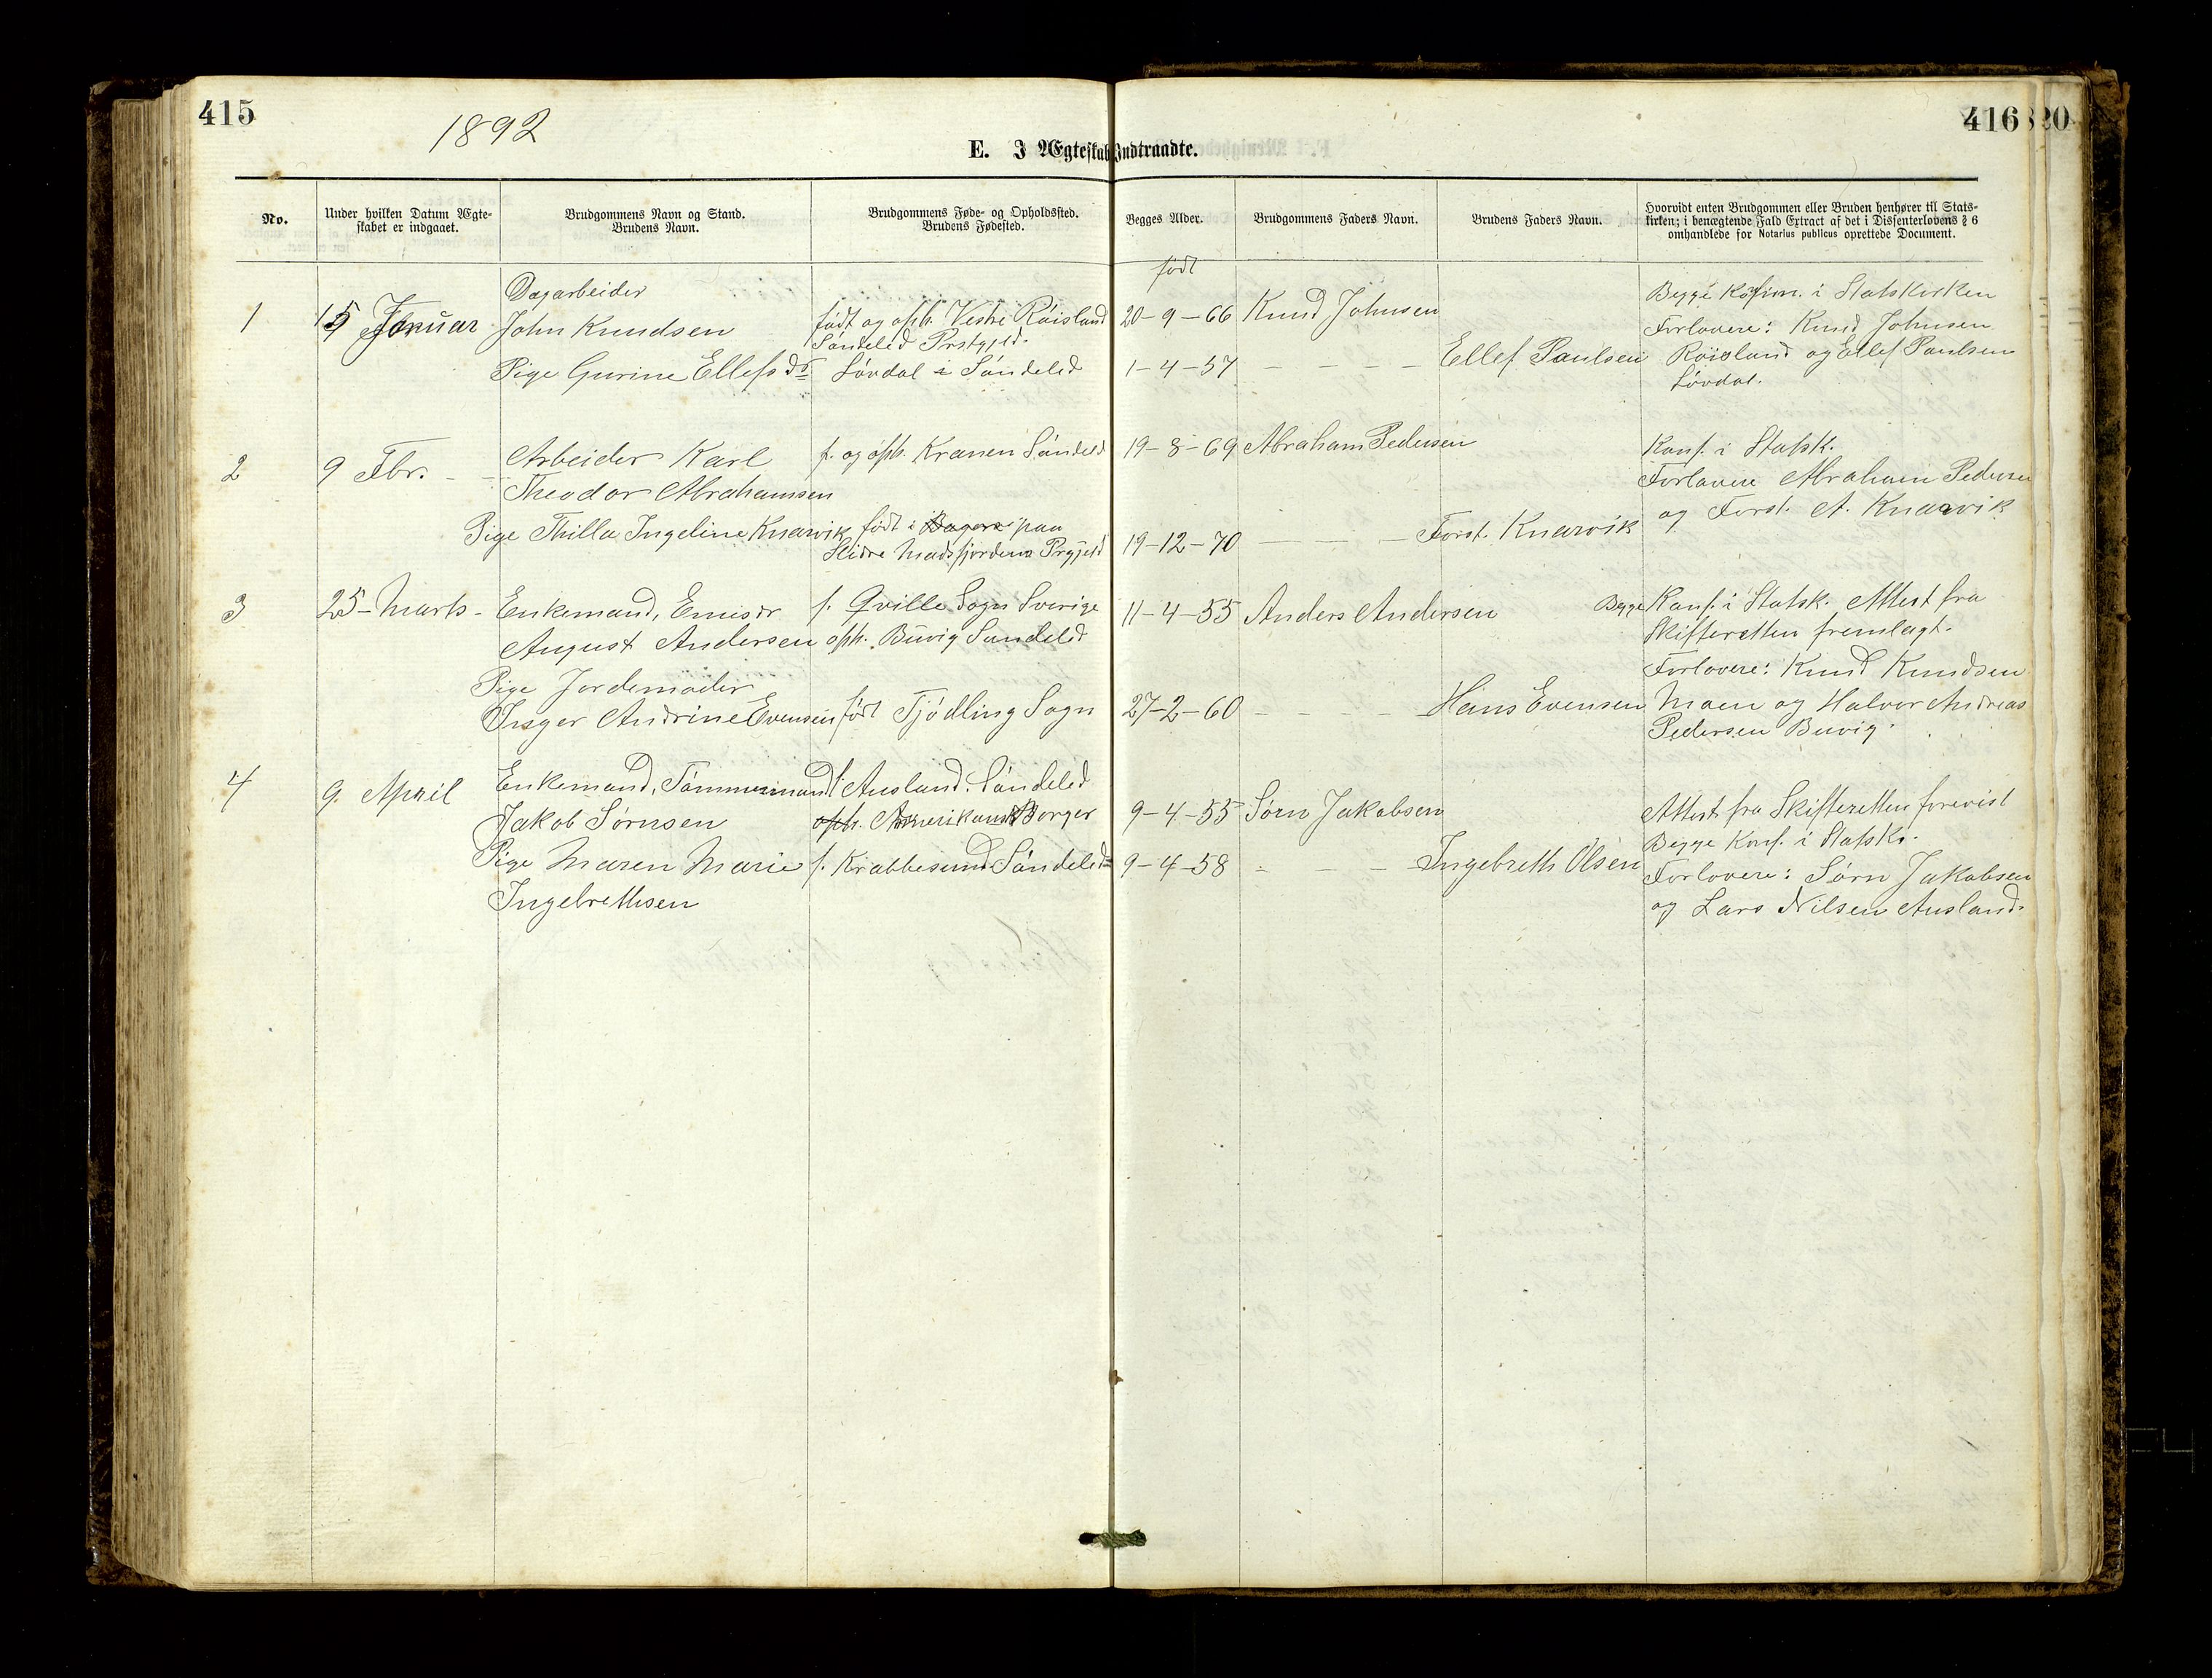 415
1892
416
320
E. I Ægteskab Indtraadte.
No.
Under hvilken Datum Ægte-
skabet er indgaaet.
Brudgommens Navn og Stand.
Brudens Navn.
Brudgommens Føde- og Opholdssted.
Brudens Fødested.
Begges Alder.
Brudgommens Faders Navn.
Brudens Faders Navn.
Hvorvidt enten Brudgommen eller Bruden henhører til Stats-
kirken; i benægtende Fald Extract af det i Dissenterlovens § 6
omhandlede for Notarius publicus oprettede Document.
født
1
15 Januar
Dagarbeider
John Knudsen
Pige Gurine Ellefsd.
født og oph. Vestre Röisland
Söndeled Prstgjld.
Lövdal i Söndeled
20-9-66
1-4-57
Knud Johnsen
Ellef Paulsen
Begge Konfirm. i Statskirken
Forlovere: Knud Johnsen
Röisland og Ellef Paulsen
Lövdal.
2
9 Fbr.
Arbeider Karl
Theodor Abrahamsen
Pige Thilla Ingeline Knarvik
f. og oph. Kranen Söndeled
født i paa
Hidre Prgjeld
19-8-69
19-12-70
Abraham Pedersen
Forst. Knarvik
Konf. i Statsk.
Forlovere Abraham Pedersen
og Forst. A. Knarvik
3
25 - Marts -
Enkemand, Emissr
August Andersen
Pige Jordemoder
Inger Andrine Evensen
f. Qville Sogn Sverige
oph. Buvig Sundeled
født Tjödling Sogn
11-4-55
27-2-60
Anders Andersen
Hans Evensen
Begge Konf. i Statsk. Attest fra
Skifteretten fremlagt.
Forlovere: Knud Knudsen
Moen og Halvor Andreas
Pedersen Buvig.
4
9. April
Enkemand, Tömmermand
Jakob Sörnsen
Pige Maren Marie
Ingebrethsen
f. Ausland. Söndeled
oph. Amerikansk Borger
f. Krabbesund Söndeled
9-4-55
9-4-58
Sörn Jakobsen
Ingebreth Olsen
Attest fra Skifteretten forevist
Begge Konf. i Statsk.
Forlovere: Sörn Jakobsen
og Lars Nilsen Ausland.